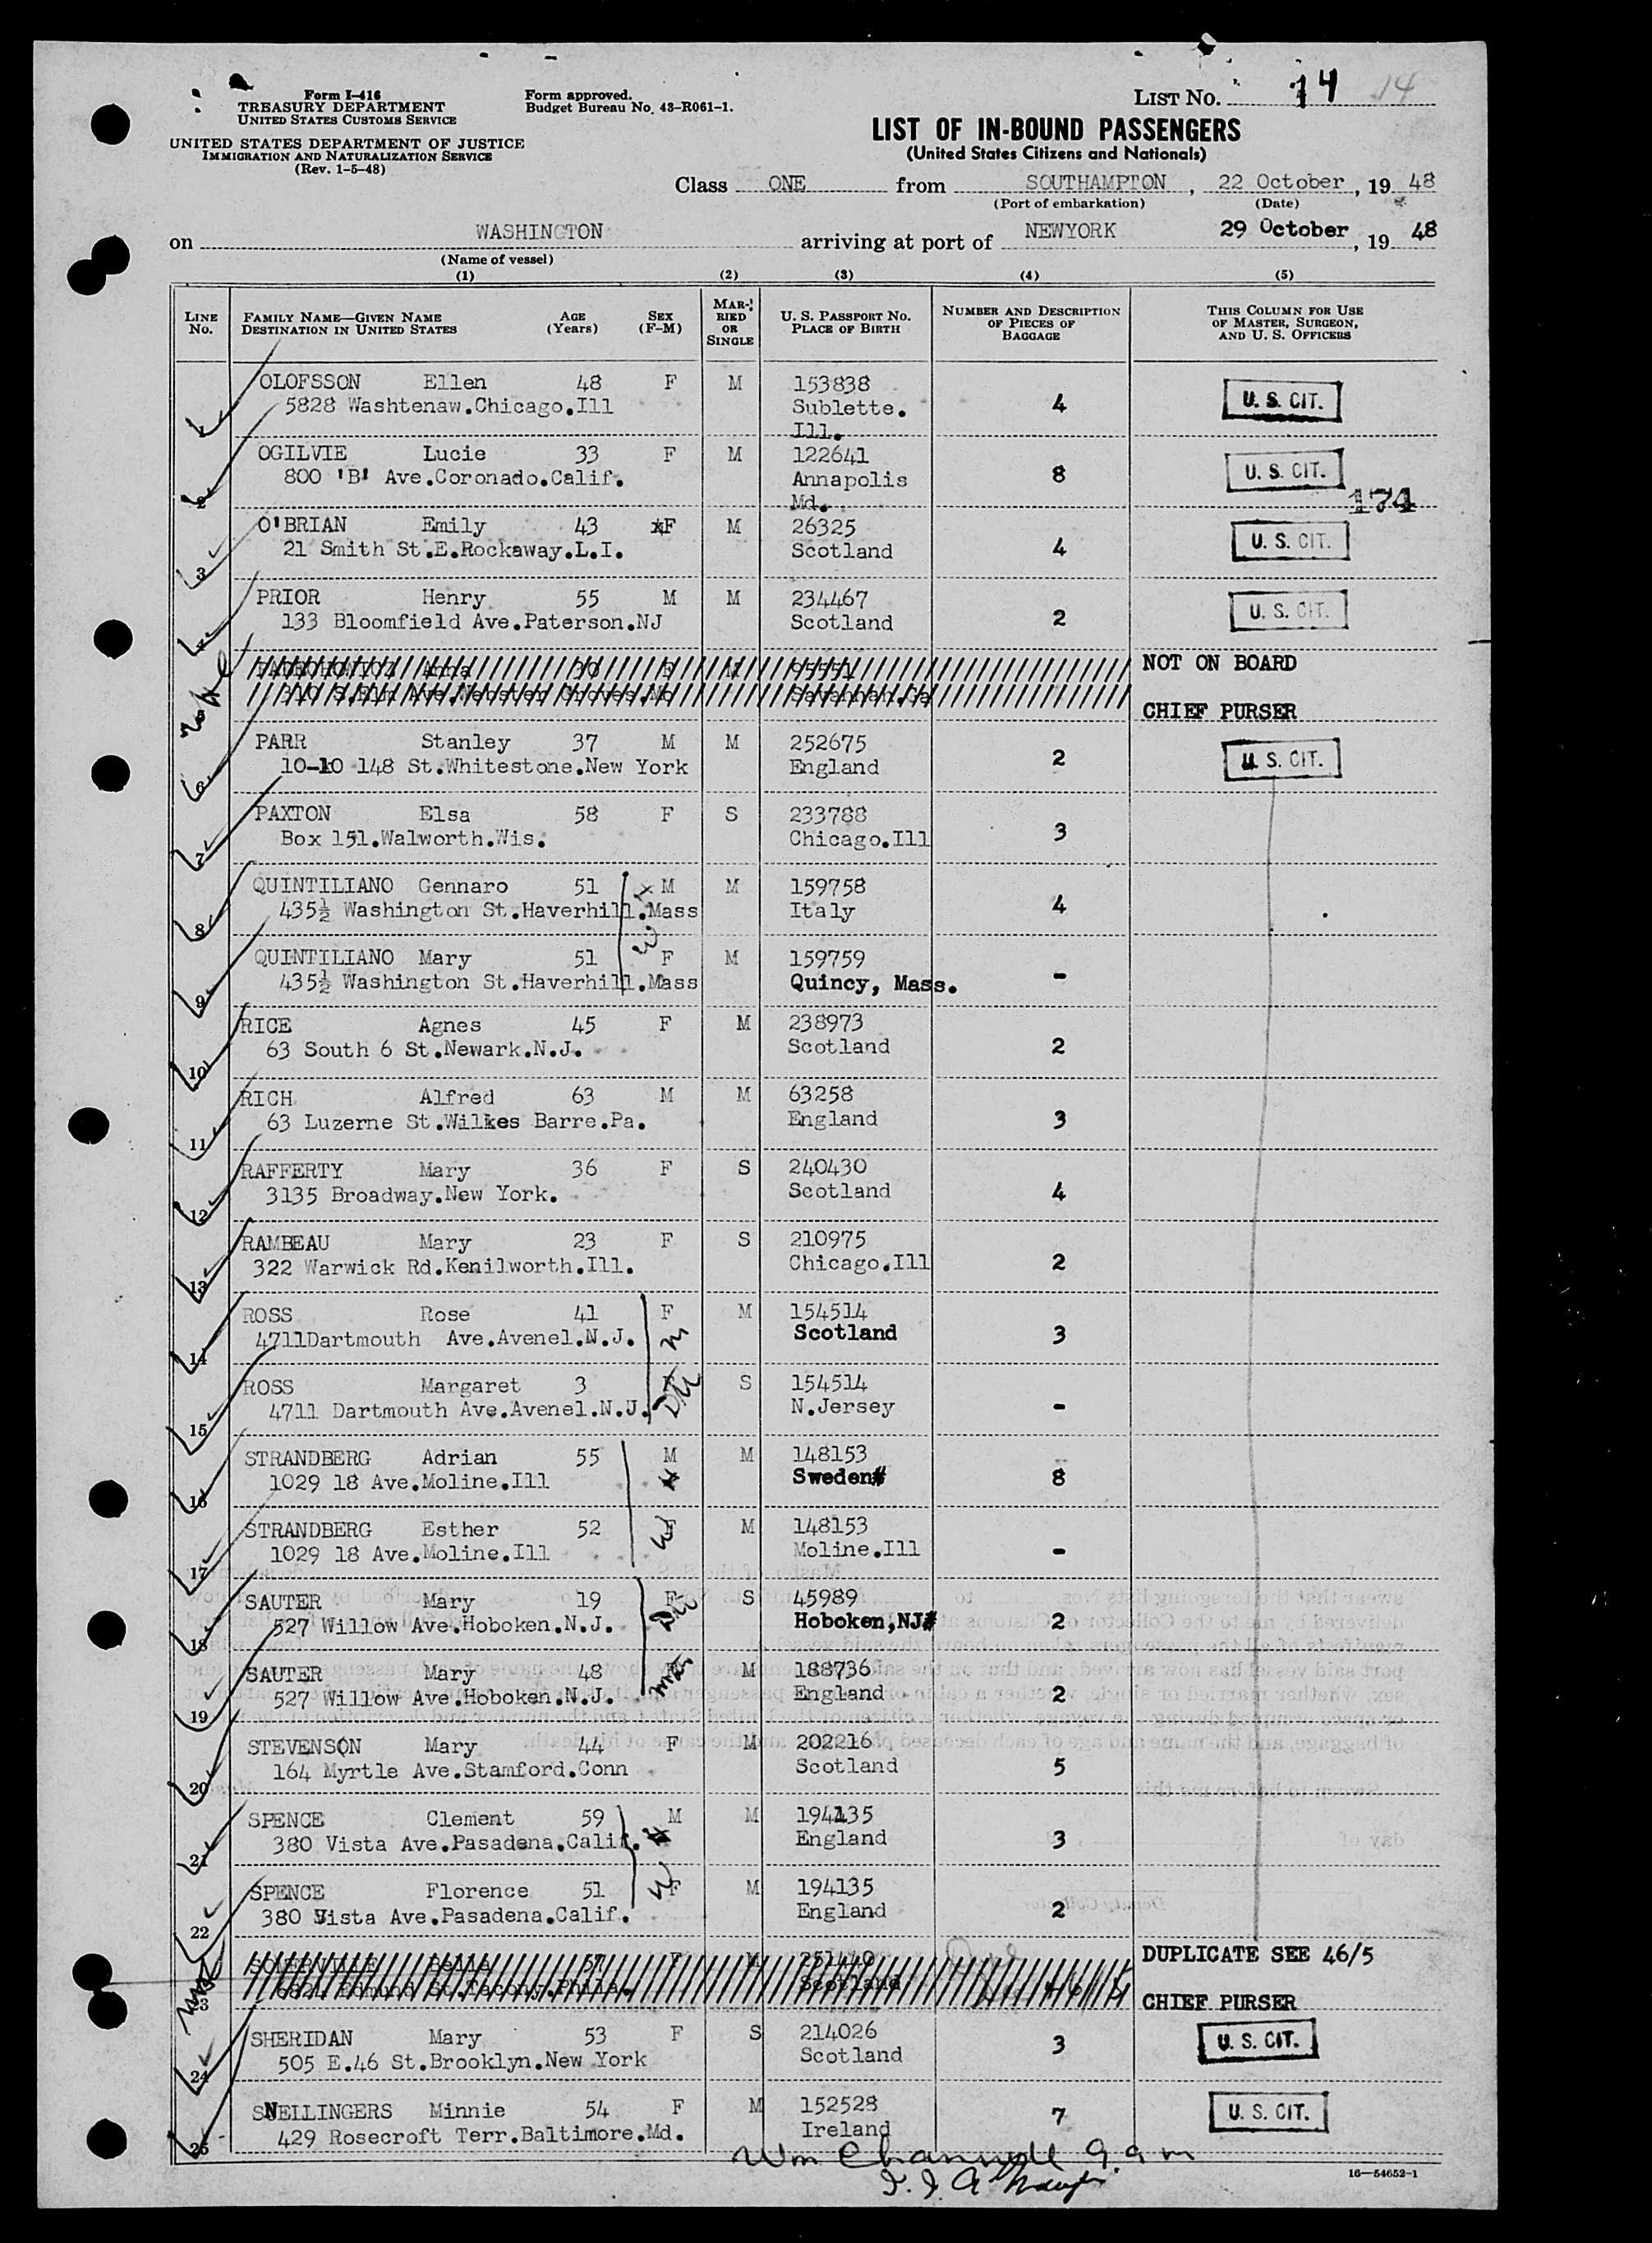 Form I-416
TREASURY DEPARTMENT
UNITED STATES CUSTOMS SERVICE
UNITED STATES DEPARTMENT OF JUSTICE
IMMIGRATION AND NATURALIZATION SERVICE
(Rev. 1-5-48)
Form approved.
Budget Bureau No. 43-R061-1.
LIST No. 14 14
LIST OF IN-BOUND PASSENGERS
(United States Citizens and Nationals)
Class ONE from SOUTHAMPTON, 22 October, 19 48
(Port of embarkation) (Date)
on WASHINGTON arriving at port of NEWYORK 29 October, 19 48
(Name of vessel)
(1) (2) (3) (4) (5)
LINE No. FAMILY NAME—GIVEN NAME DESTINATION IN UNITED STATES AGE (Years) SEX (F-M) MARRIED OR SINGLE U. S. PASSPORT No. PLACE OF BIRTH NUMBER AND DESCRIPTION OF PIECES OF BAGGAGE THIS COLUMN FOR USE OF MASTER, SURGEON, AND U. S. OFFICERS
1 OLOFSSON Ellen 48 F M 153838 4 U. S. CIT.
5828 Washtenaw.Chicago.Ill Sublette.
Ill.
2 OGILVIE Lucie 33 F M 122641 8 U. S. CIT.
800 'B' Ave.Coronado.Calif. Annapolis
Md. 174
3 O'BRIAN Emily 43 F M 26325 4 U. S. CIT.
21 Smith St.E.Rockaway.L.I. Scotland
4 PRIOR Henry 55 M M 234467 2 U. S. CIT.
133 Bloomfield Ave.Paterson.NJ Scotland
Anna 30 F M NOT ON BOARD
Ave.Webster Groves.Mo Savannah.Ga
CHIEF PURSER
6 PARR Stanley 37 M M 252675 2 U. S. CIT.
10-10 148 St.Whitestone.New York England
7 PAXTON Elsa 58 F S 233788 3
Box 151.Walworth.Wis. Chicago.Ill
8 QUINTILIANO Gennaro 51 M M 159758 4
435½ Washington St.Haverhill.Mass Italy
9 QUINTILIANO Mary 51 F M 159759 -
435½ Washington St.Haverhill.Mass Quincy, Mass.
10 RICE Agnes 45 F M 238973 2
63 South 6 St.Newark.N.J. Scotland
11 RICH Alfred 63 M M 63258 3
63 Luzerne St.Wilkes Barre.Pa. England
12 RAFFERTY Mary 36 F S 240430 4
3135 Broadway.New York. Scotland
13 RAMBEAU Mary 23 F S 210975 2
322 Warwick Rd.Kenilworth.Ill. Chicago.Ill
14 ROSS Rose 41 F M 154514 3
4711Dartmouth Ave.Avenel.N.J. Scotland
15 ROSS Margaret 3 F S 154514 -
4711 Dartmouth Ave.Avenel.N.J. N.Jersey
16 STRANDBERG Adrian 55 M M 148153 8
1029 18 Ave.Moline.Ill Sweden
17 STRANDBERG Esther 52 F M 148153 -
1029 18 Ave.Moline.Ill Moline.Ill
18 SAUTER Mary 19 F S 45989 2
527 Willow Ave.Hoboken.N.J. Hoboken,NJ
19 SAUTER Mary 48 F M 188736 2
527 Willow Ave.Hoboken.N.J. England
20 STEVENSON Mary 44 F M 202216 5
164 Myrtle Ave.Stamford.Conn Scotland
21 SPENCE Clement 59 M M 194135 3
380 Vista Ave.Pasadena.Calif. England
22 SPENCE Florence 51 F M 194135 2
380 Vista Ave.Pasadena.Calif. England
23 SOMERVILLE 57 F 251440 DUPLICATE SEE 46/5
Edmund St.Tacony.Phila. Scotland
CHIEF PURSER
24 SHERIDAN Mary 53 F S 214026 3 U. S. CIT.
505 E.46 St.Brooklyn.New York Scotland
25 SNELLINGERS Minnie 54 F M 152528 7 U. S. CIT.
429 Rosecroft Terr.Baltimore.Md. Ireland
16—54652-1